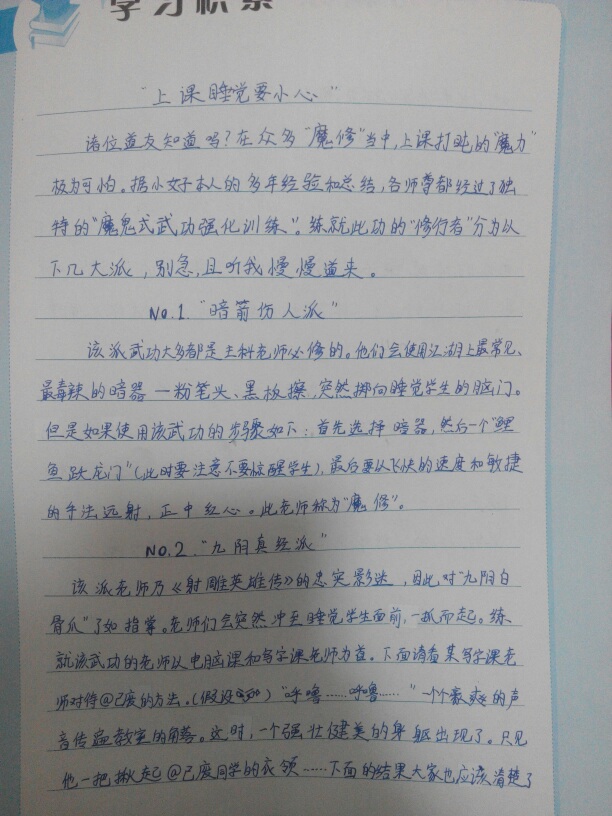 学习积累
"上课睡觉要小心"
诸位道友知道吗?在众多"魔修"当中,上课打盹的"魔力"
极为可怕。据小女子本人的多年经验和总结,各师尊都经过了独
特的"魔鬼式武功强化训练"。练就此功的"修行者"分为以
下几大派,别急,且听我慢慢道来。
No.1."暗箭伤人派"
该派武功大多都是主科老师必修的。他们会使用江湖上最常见、
最毒辣的暗器一粉笔头、黑板擦,突然掷向睡觉学生的脑门。
但是如果使用该武功的步骤如下:首先选择暗器,然后一个"鲤
鱼跃龙门"(此时要注意不要惊醒学生),最后要以飞快的速度和敏捷
的手法远射,正中红心。此老师称为"魔修"。
No.2."九阴真经派"
该派老师乃《射雕英雄传》的忠实影迷,因此对"九阴白
骨爪"了如指掌。老师们会突然冲至睡觉学生面前,一抓而起。练
就该武功的老师以电脑课和写字课老师为首。下面请看某写字课老
师对待@己廢的方法。(假设)"呼噜……呼噜……"一个个豪爽的声
音传遍教室的角落。这时,一个强壮健美的身躯出现了。只见
他一把揪起@己廢同学的衣领……下面的结果大家也应该清楚了